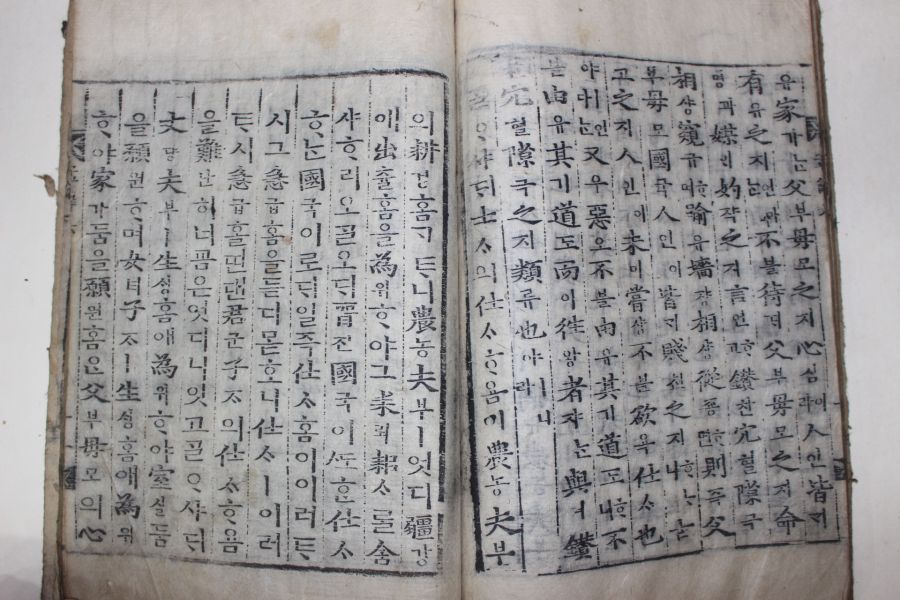 유家가ᄂᆞᆫ父부母모之지心심이人인皆ᄀᆡ
有유之지언마ᄂᆞᆫ不블待ᄃᆡ父부母모之지命
명과媒ᄆᆡ妁쟉之지言언ᄒᆞ고鑽찬穴혈隙극
相샹窺규ᄒᆞ며踰유墻쟝相샹從죵ᄒᆞ면則즉父
부母모國국人인이皆ᄀᆡ賤쳔之지ᄒᆞᄂᆞ니古
고之지人인이未미嘗샹不블欲욕仕ᄉᆞ也
야ㅣ언마ᄂᆞᆫ又우惡오不블由유其기道도ᄒᆞ니不
블由유其기道도而이往왕者쟈ᄂᆞᆫ與여鑽
찬穴혈隙극之지類류也야ㅣ니라
ᄀᆞᆯᄋᆞ샤ᄃᆡ士ᄉᆞ의仕ᄉᆞᄒᆞ욤이農농夫부
의耕경홈ᄀᆞᆮᄐᆞ니農농夫부ㅣ엇디疆강
에出츌홈을爲위ᄒᆞ야그耒뢰耜ᄉᆞᄅᆞᆯ舍
샤ᄒᆞ리오ᄀᆞᆯ오ᄃᆡ晉진國국이ᄯᅩᄒᆞᆫ仕ᄉᆞ
ᄒᆞᄂᆞᆫ國국이로ᄃᆡ일즉仕ᄉᆞ홈이이러ᄐᆞ
시그急급홈을듣디몯호니仕ᄉᆞㅣ이러
ᄐᆞ시急급ᄒᆞᆯ띤댄君군子ᄌᆞ의仕ᄉᆞᄒᆞ욤
을難난히너김은엇디니잇고ᄀᆞᆯᄋᆞ샤ᄃᆡ
丈댱夫부ㅣ生ᄉᆡᆼ홈애爲위ᄒᆞ야室실둠
을願원ᄒᆞ며女녀子ᄌᆞㅣ生ᄉᆡᆼ홈애爲위
ᄒᆞ야家가둠을願원홈은父부母모의心